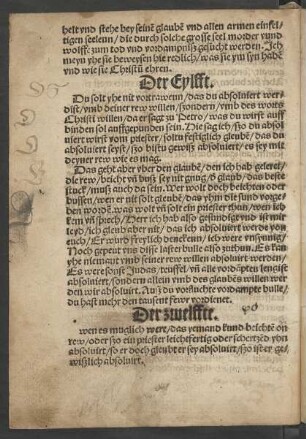 helt vnd stehe bey seine glaubē vnd allen armen einfel-
tigen seelenn / die durch solche grosse seel morder vnnd
wolffe zum tod vnd vordampniß gesucht werden. Ich
meyn yhe sie beweysen hie redlich / was sie yn syn habē
vnd wie sie Christū ehren.
Der Eylfft.
Du solt yhe nit vortrawenn / das du absoluiert wer-
dist / vmb deiner rew willen / sondern / vmb des worts
Christi willen / da er sagt zu Petro / was du wirst auff
binden sol auffgepunden sein. Die sag ich / ßo du absol
uiert wirst vom priester / soltu festiglich gleubē / das du
absoluiert seyst / ßo bistu gewiß absoluiert / es sey mit
deyner rew wie es mag.
Das geht aber vber den glaubē / den ich hab geleret /
die rew / beicht vñ buß sey nit gnug / gleub ynhabē / das beste
stuck / muß auch da sein. Wer wolt doch beichten oder
bussen / wen er nit solt gleubē / das yhm die sund vorge
ben wordē. was wolt yñ solt ein priester thun / wen ich
kam vñ sprech / Herr ich hab also gesundigt vnd ist mir
leyd / ich gleub aber nit / das ich absoluiert werde von
euch / Er wurd freylich dencken / ich were vnsynnig /
Noch gepeut diß diße laster bulle also zuthun. Es kan
yhe niemant vmb seiner rew willen absoluirt werden /
Es were sonst Judas / teuffel / vñ alle vordāpten lengist
absoluiert / sondern allein vmb des glaubēs willen wer
den wir absoluirt. Au ß du vorfluchte vordampte bulle /
du hast mehr den tausent fewr vordienet.
Der zwelffte.
wen es muglich were / das yemand sund beichtē on
rew / oder ßo ein priester leichtfertig oder schertzēd yhn
absoluirt / so er doch gleubt er sey absoluirt / ßo ist er ge-
wißlich absoluirt.